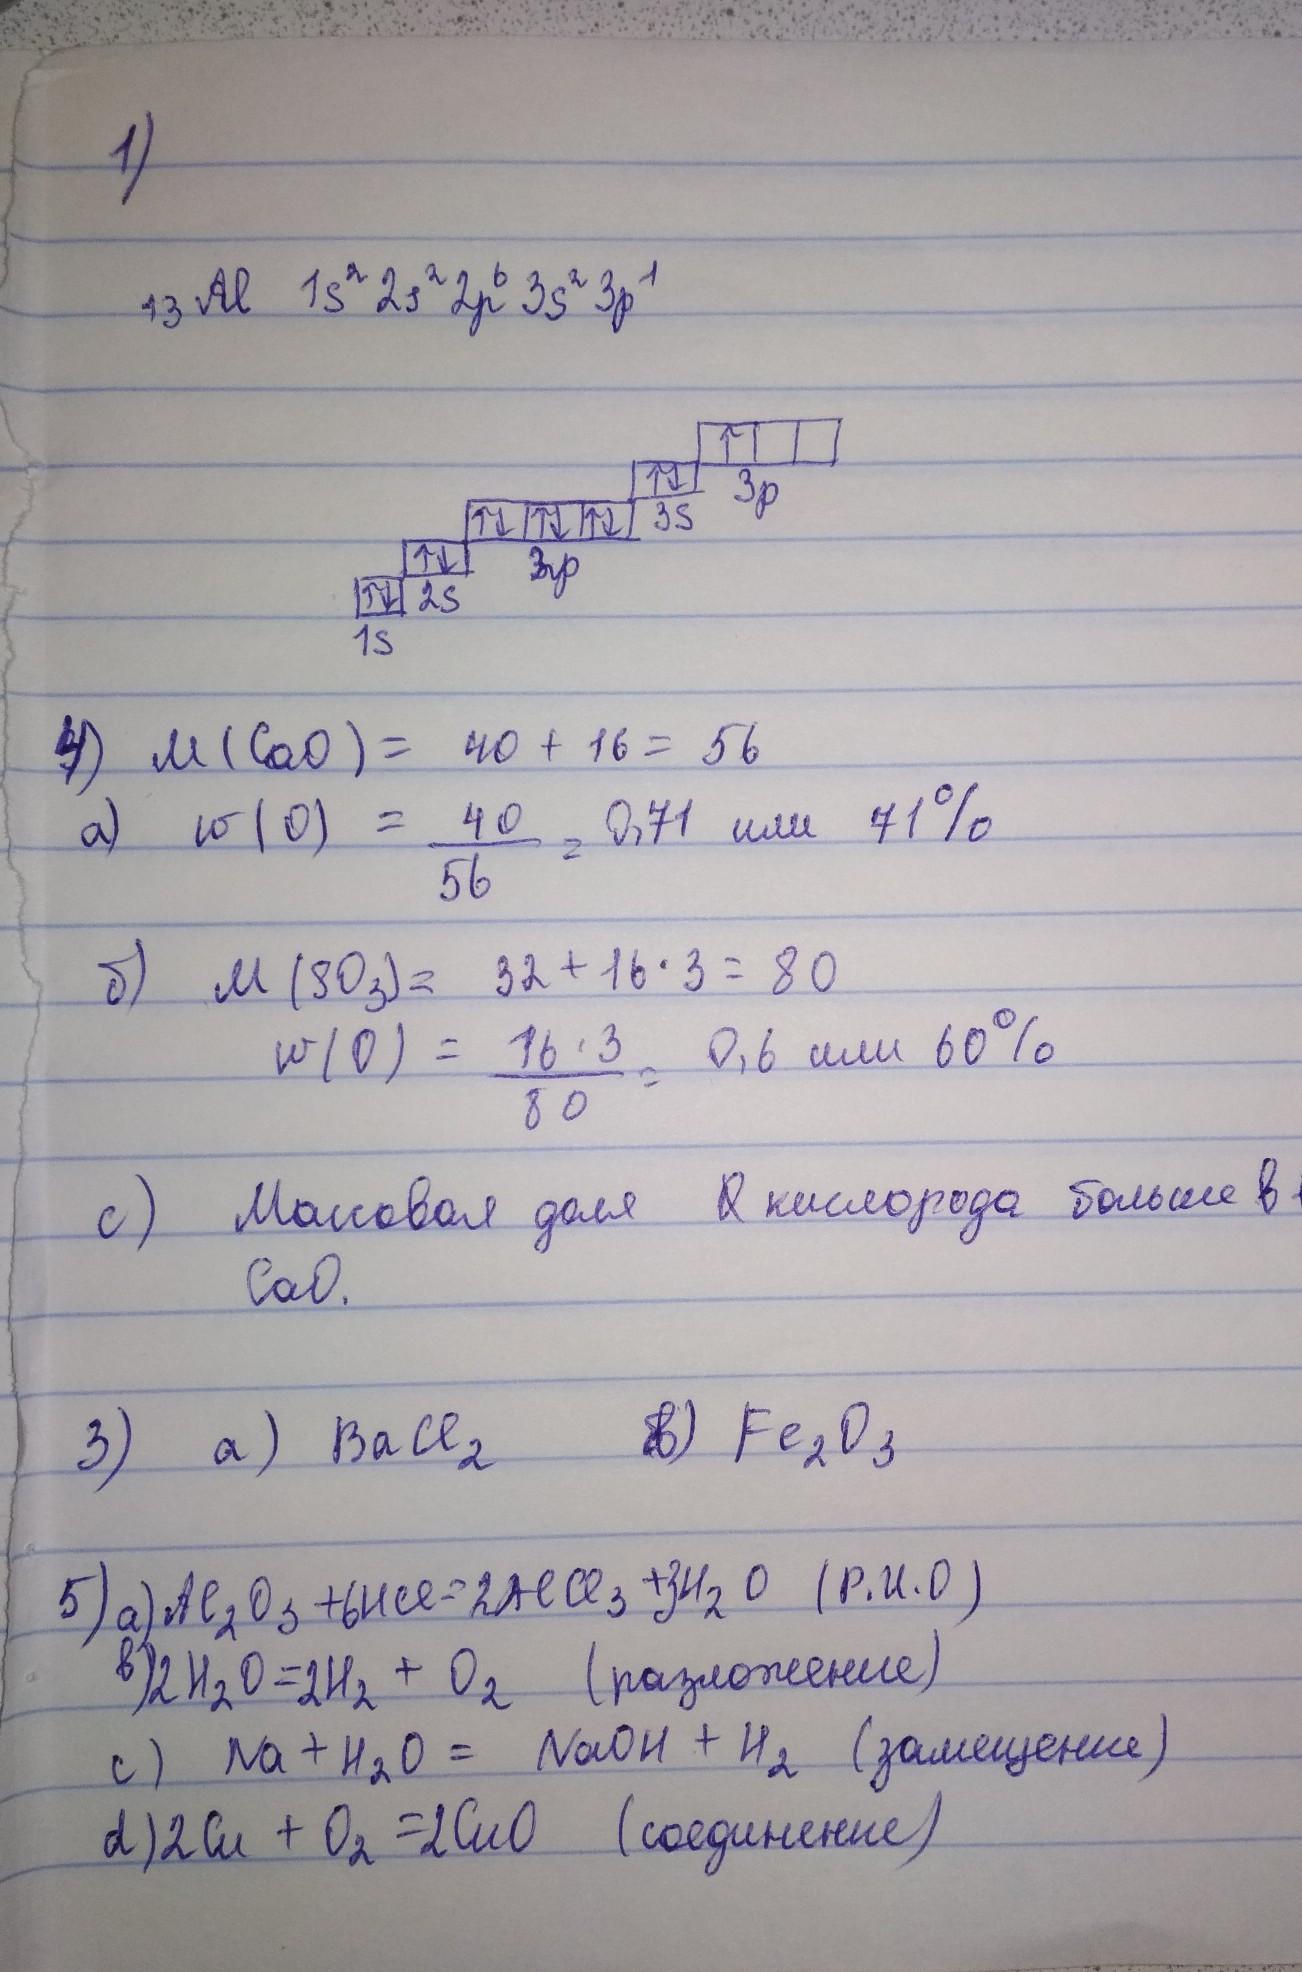 1)
₁₃Al 1s² 2s² 2p⁶ 3s² 3p¹
↑ 3p
↑↓ 3s
↑↓ ↑↓ ↑↓
↑↓ 2s
↑↓
1s
4) M(CaO) = 40 + 16 = 56
a) w(O) = 40/56 = 0,71 или 71%
б) M(SO₃) = 32 + 16·3 = 80
w(O) = 16·3/80 = 0,6 или 60%
c) Массовая доля кислорода больше в
CaO.
3) a) BaCl₂ в) Fe₂O₃
5) a) Al₂O₃ + 6HCl = 2AlCl₃ + 3H₂O (Р.И.О)
в) 2H₂O = 2H₂ + O₂ (разложение)
c) Na + H₂O = NaOH + H₂ (замещение)
d) 2Cu + O₂ = 2CuO (соединение)